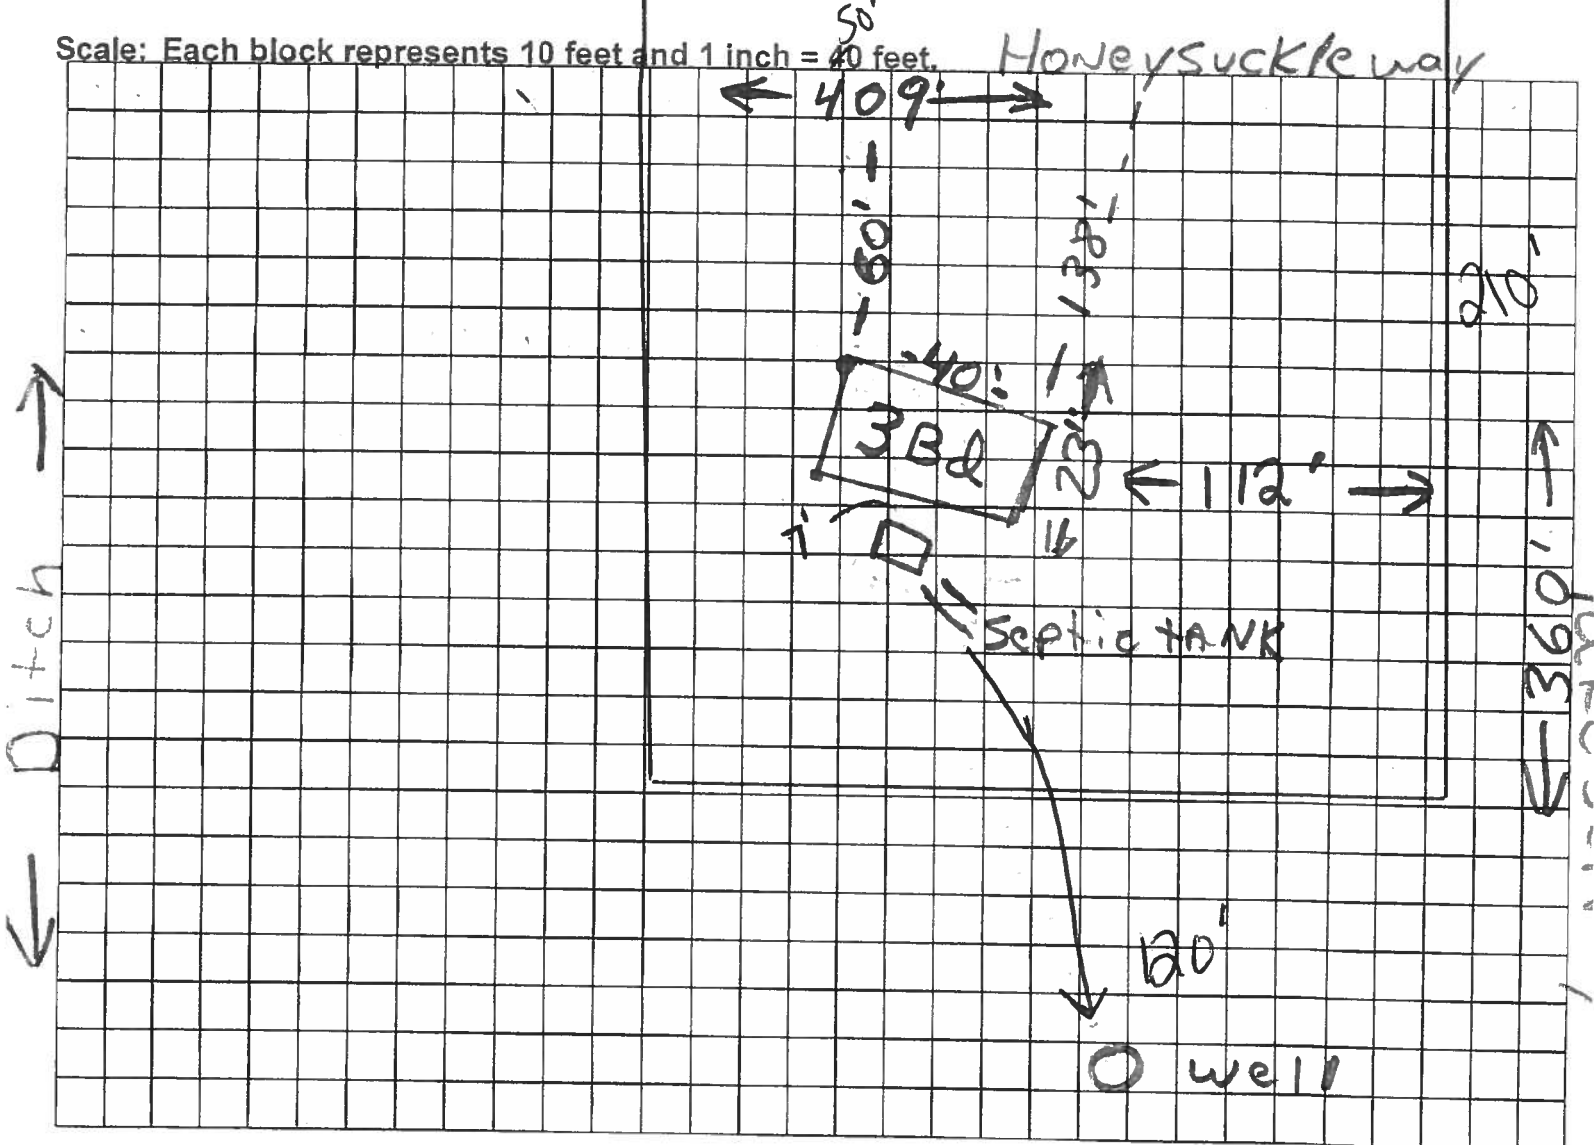 50'
Scale: Each block represents 10 feet and 1 inch = 40 feet.
Honeysuckle way
409'
138'
210'
40'
3Bd
23'
112'
7'
Septic tANK
360'
Ditch
120'
well